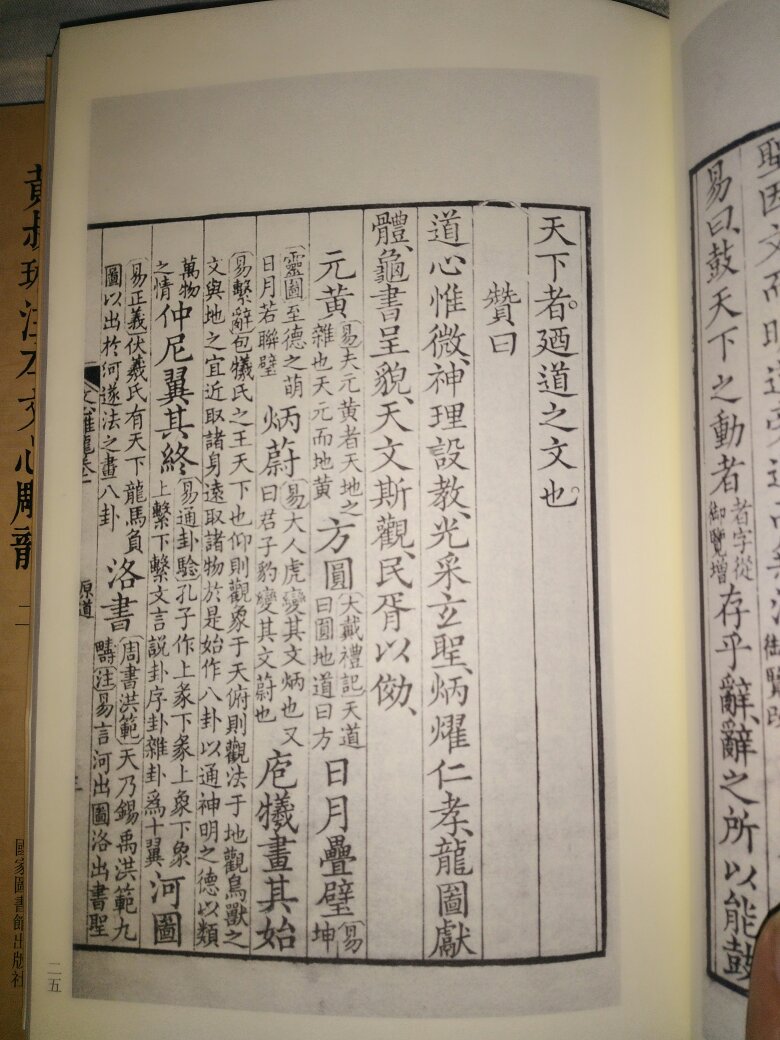 易曰、鼓天下之動者
者字從
御覽增
存乎辭、辭之所以能鼓
天下者。廼道之文也。
贊曰
道心惟微、神理設教、光采玄聖、炳燿仁孝、龍圖獻
體、龜書呈貌、天文斯觀、民胥以傚、
元黄
易夫元黄者天地之
雜也天元而地黄
方圓
大戴禮記天道
曰圓地道曰方
日月疊璧
易
坤
靈圖至德之萌
日月若聯璧
炳蔚
易大人虎變其文炳也又
曰君子豹變其文蔚也
庖犧畫其始
易繫辭包犧氏之王天下也仰則觀象于天俯則觀法于地觀鳥獸之
文與地之宜近取諸身遠取諸物於是始作八卦以通神明之德以類
萬物
之情
仲尼翼其終
易通卦驗孔子作上彖下彖上象下象
上繫下繫文言說卦序卦雜卦爲十翼
河圖
易正義伏羲氏有天下龍馬負
圖以出於河遂法之畫八卦
洛書
周書洪範天乃錫禹洪範九
疇注易言河出圖洛出書聖
原道
三
二五
黃叔琳注本文心雕龍
二
國家圖書館出版社